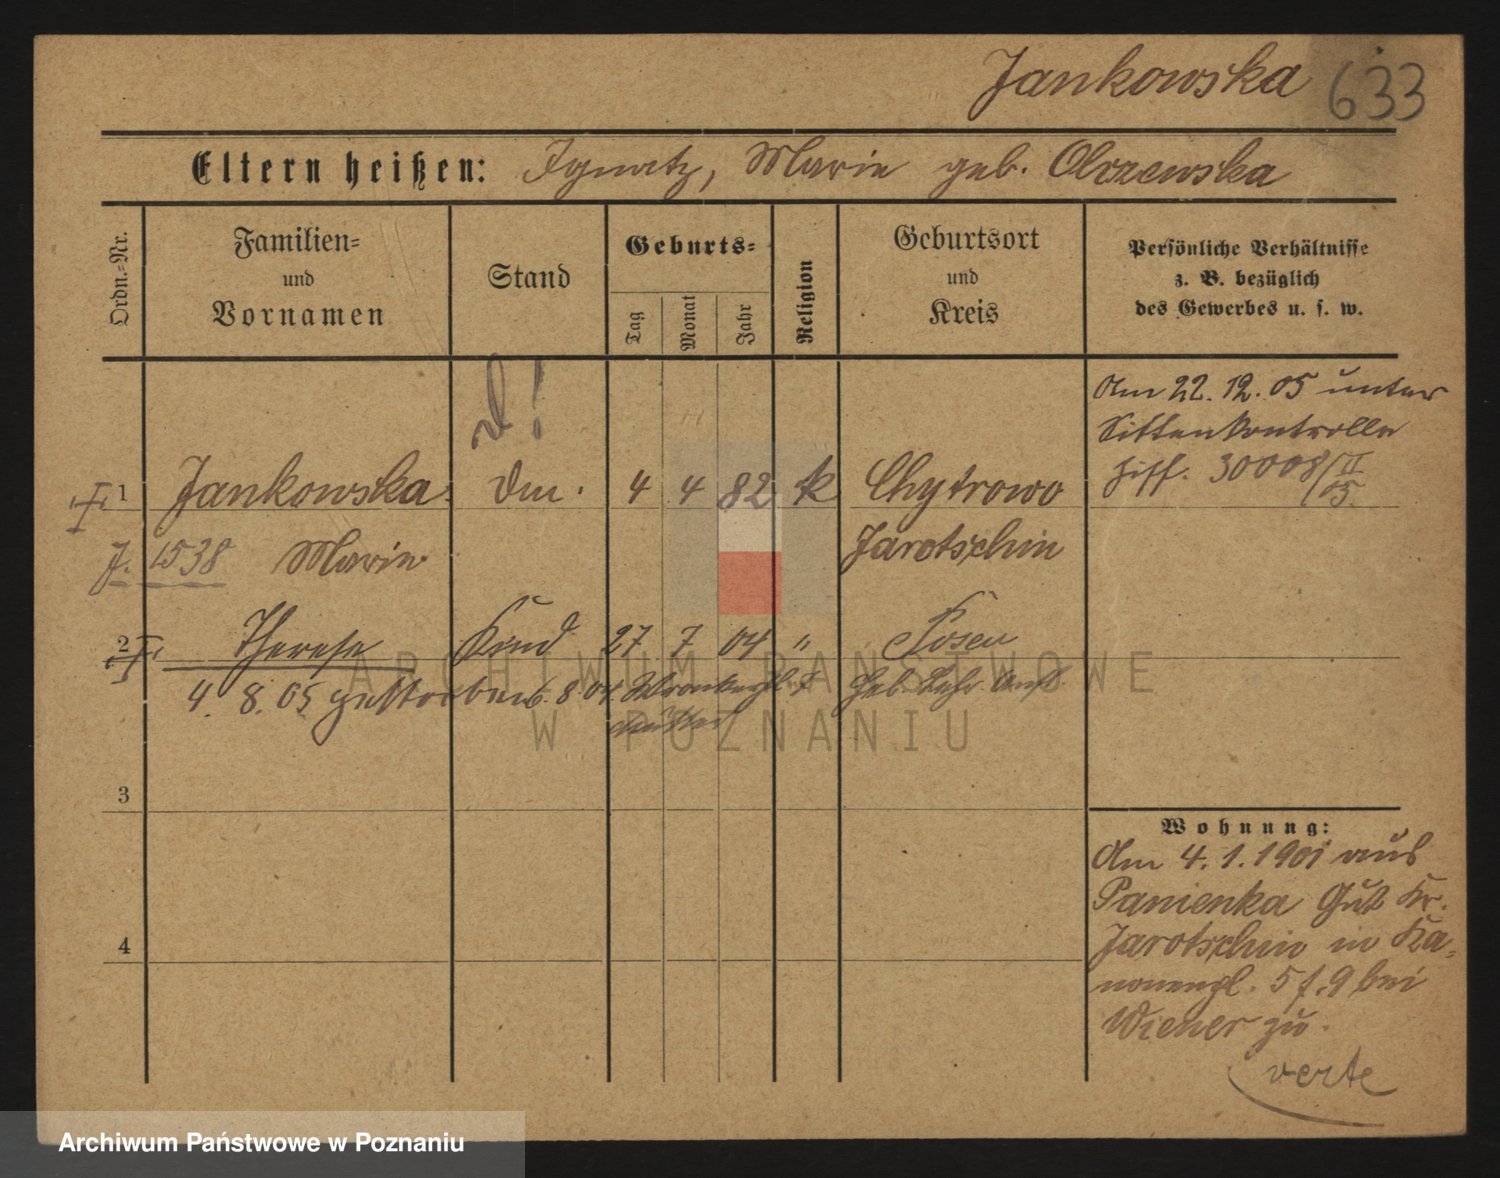 Jankowska 633
Eltern heißen: Ignatz, Marie geb. Olszewska
Ordn.=Nr.
Familien=
und
Vornamen
Stand
Geburts=
Tag
Monat
Jahr
Religion
Geburtsort
und
Kreis
Persönliche Verhältnisse
z. B. bezüglich
des Gewerbes u. s. w.
Am 22. 12. 05 unter
Sittenkontrolle
30008/II
05.
1 Jankowska 4 4 82 k Chytrowo
J. 1538 Marie Jarotschin
2 Therese Kind 27 7 04 " Posen
4. 8. 05 gestorben
3
4
Wohnung:
Am 4. 1. 1901 aus
Panienka Gut Kr.
Jarotschin in Ka=
nonenpl. 5 f. 9 bei
Wiener zu.
verte
ARCHIWUM PAŃSTWOWE
W POZNANIU
Archiwum Państwowe w Poznaniu